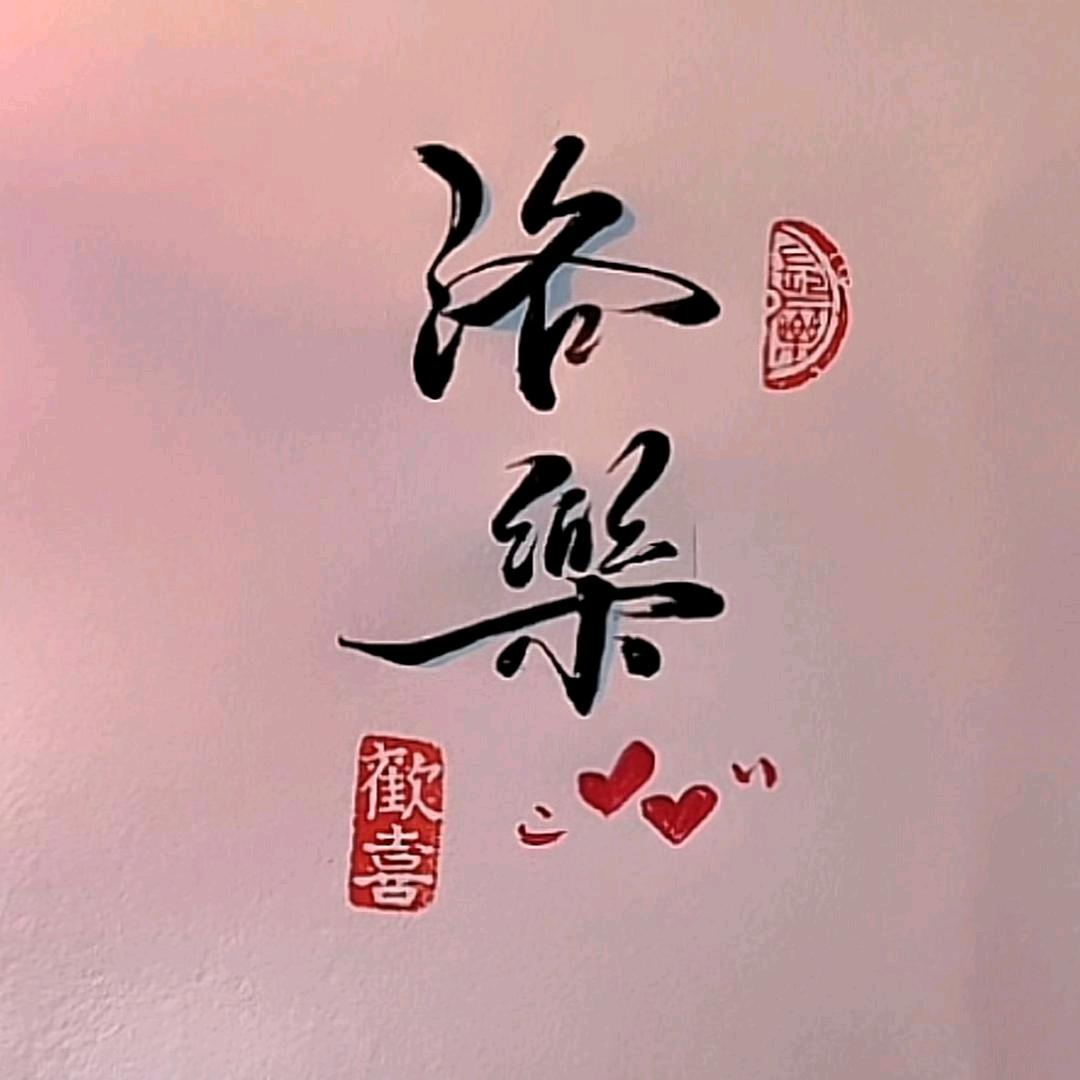 洛
樂
歡
喜